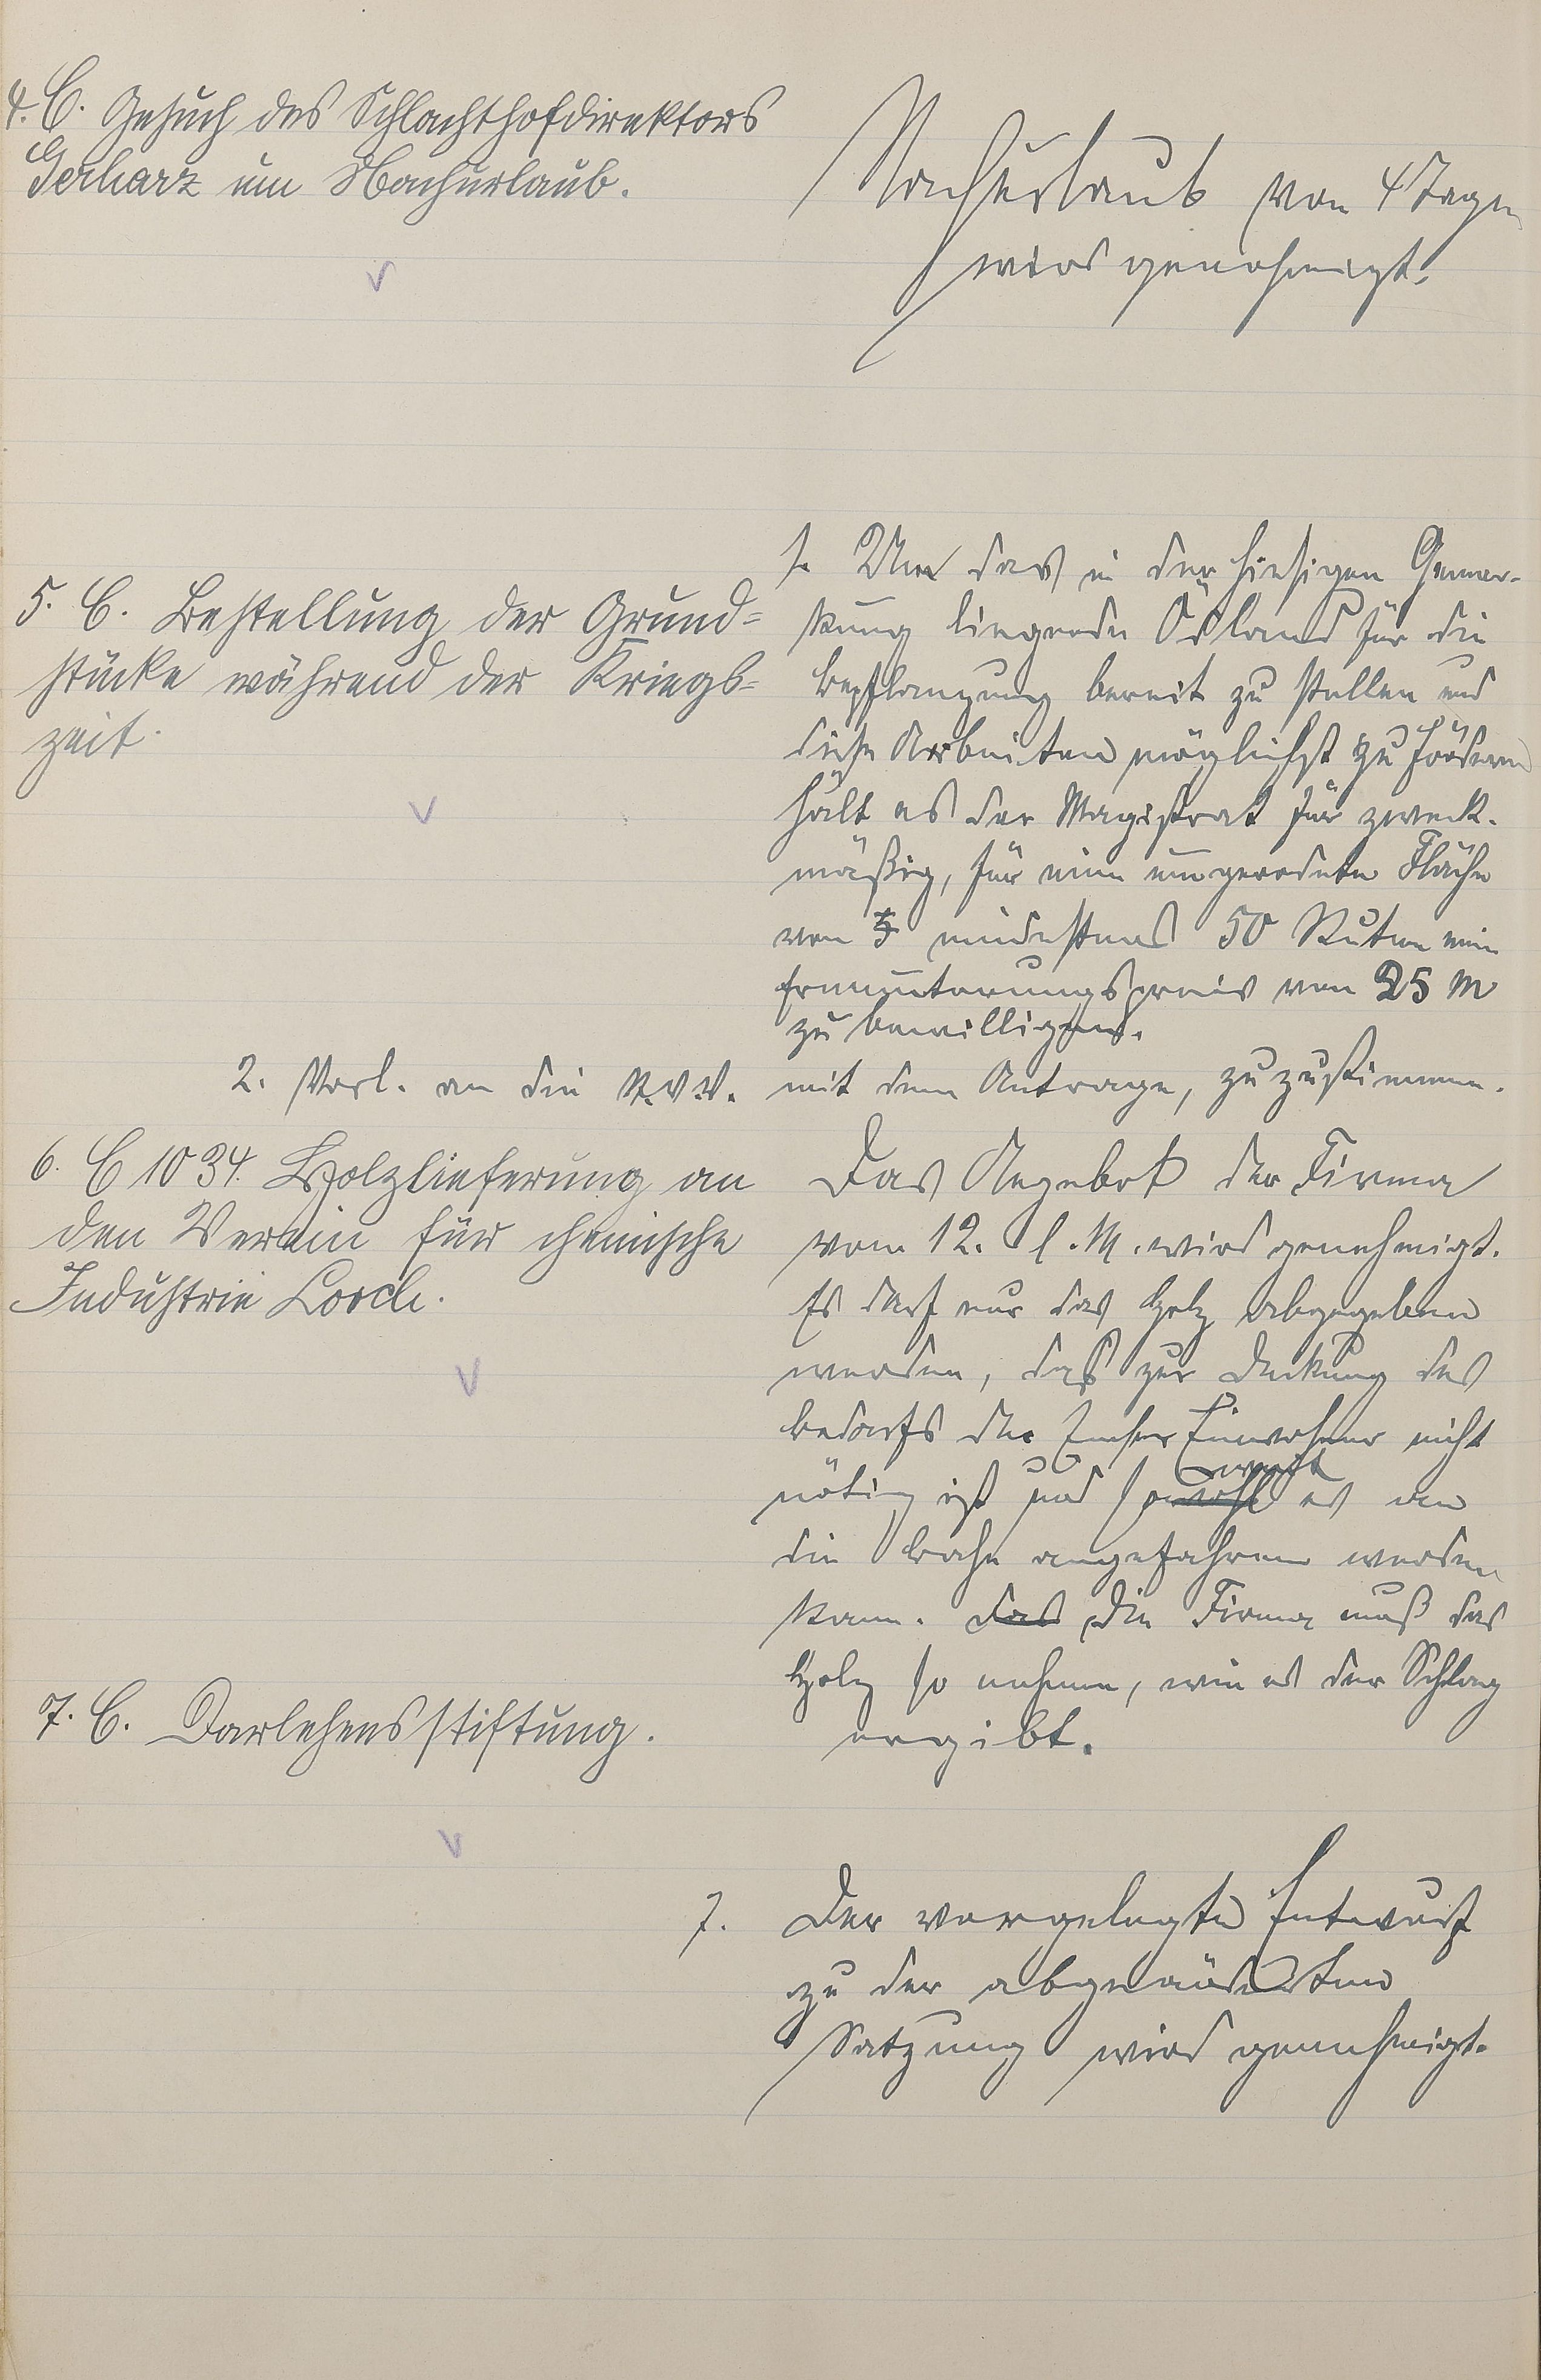 4. C. Gesuch des Schlachthofdirektors
Gerharz um Nachurlaub.
Nachurlaub von 4 Tagen
wird genehmigt.
5. C. Bestellung der Grund=
stücke während der Kriegs=
zeit.
1. Um das in der hiesigen Gemar-
kung liegende Ödland für die
Bepflanzung bereit zu stellen und
diese Arbeiten möglichst zu fördern
hält es der Magistrat für zweck-
mäßig, für eine umgerodete Fläche
von 5 mindestens 50 Ruten eine
Ermunterungspreis von 25 M
zu bewilligen.
2. Vorl. an die St.V.V. mit dem Antrage, zuzustimmen.
6. C 1034. Holzlieferung an
den Verein für chemische
Industrie Lorch.
Das Angebot der Firma
vom 12. l. M. wird genehmigt.
Es darf nur das Holz abgegeben
werden, das zur Deckung des
Bedarfs der Emser Einwohner nicht
nötig ist und soweit es an
die Bahn angefahren werden
kann. das Die Firma muß das
Holz so nehmen, wie es der Schlag
ergibt.
7. C. Darlehensstiftung.
7. Der vorgelegte Entwurf
zu der abgeänderten
Satzung wird genehmigt.